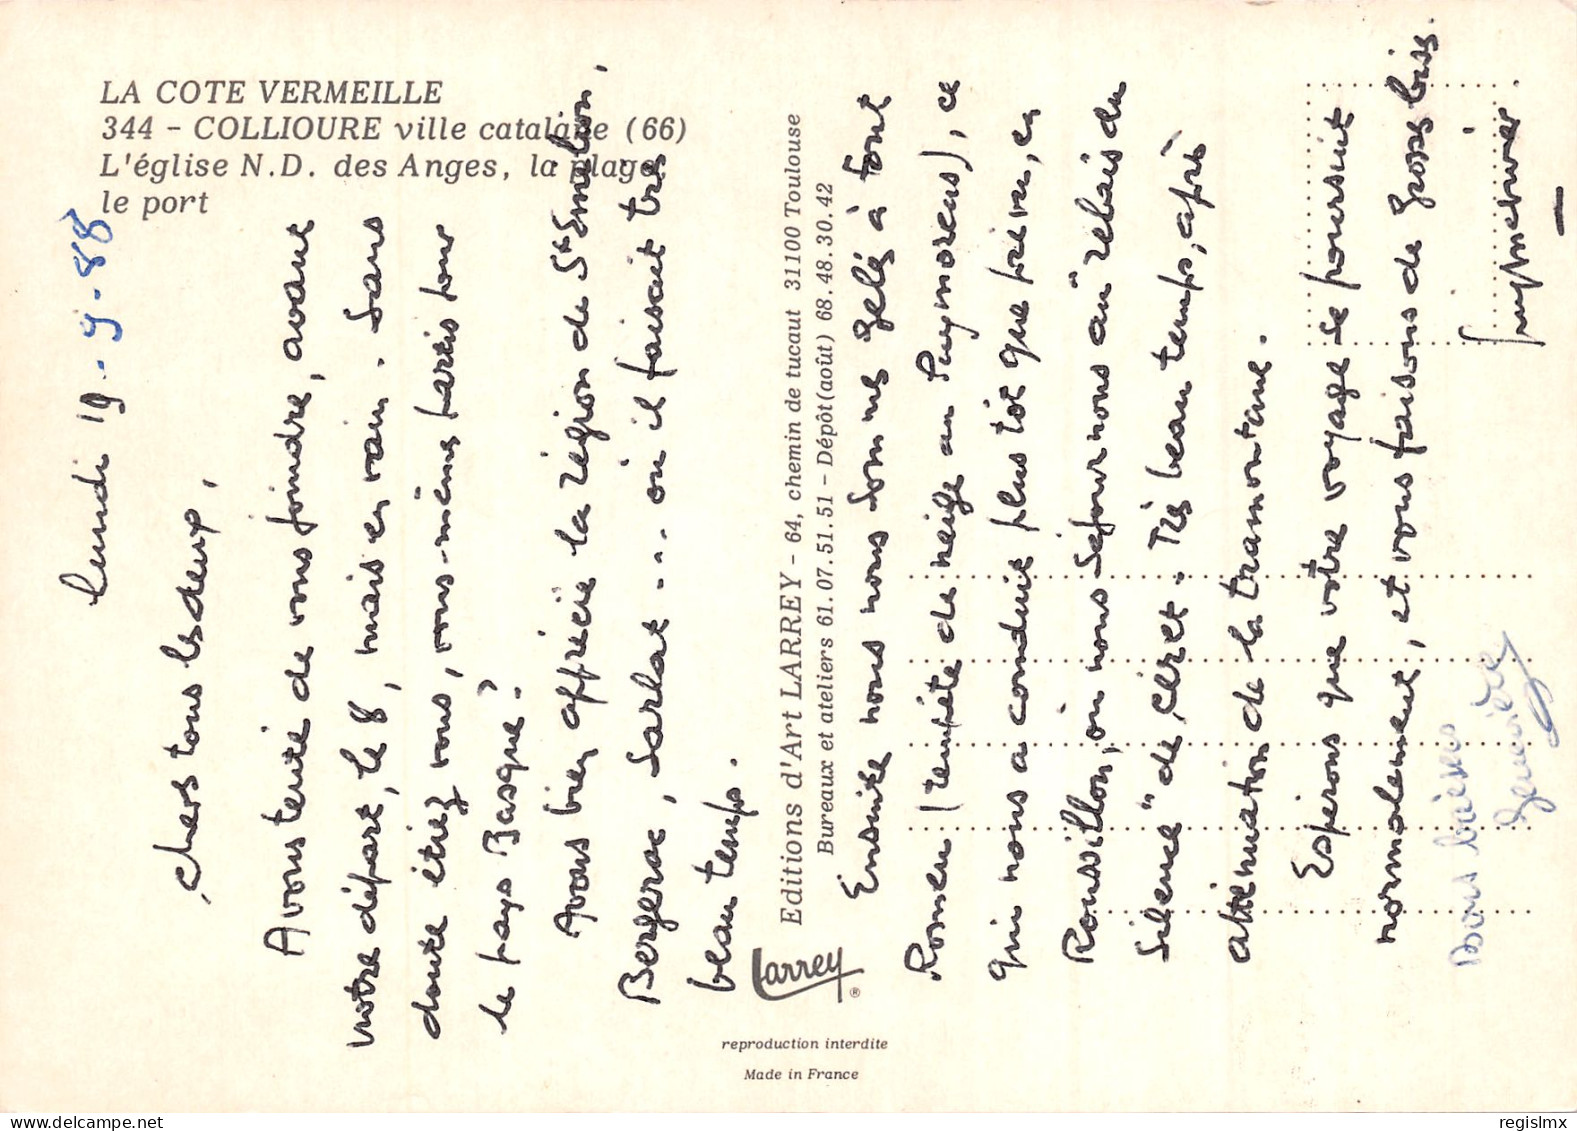 LA COTE VERMEILLE
344 - COLLIOURE ville catalane (66)
L'église N.D. des Anges, la plage,
le port
lundi 19.9.88
Chers tous les deux,
Avons tenté de vous joindre, avant
votre départ, le 8, mais en vain. Sans
doute étiez vous, vous-mêmes partis pour
le pays Basque?
Avons bien apprécié la région de St Emilion,
Bergerac, Sarlat... où il faisait très
beau temps.
Editions d'Art LARREY - 64, chemin de tucaut 31100 Toulouse
Bureaux et ateliers 61.07.51.51 - Dépôt (août) 68.48.30.42
Larrey ®
reproduction interdite
Made in France
Ensuite nous nous sommes gelé à Font
Romeu (tempête de neige au Puymorens), ce
qui nous a conduit plus tôt que prévu, en
Roussillon, où nous séjournons au "relais du
silence" de Céret. Très beau temps, après
atténuation de la tramontane.
Espérons que votre voyage se poursuit
normalement, et vous faisons de grosses bises.
Bons baisers
Geneviève